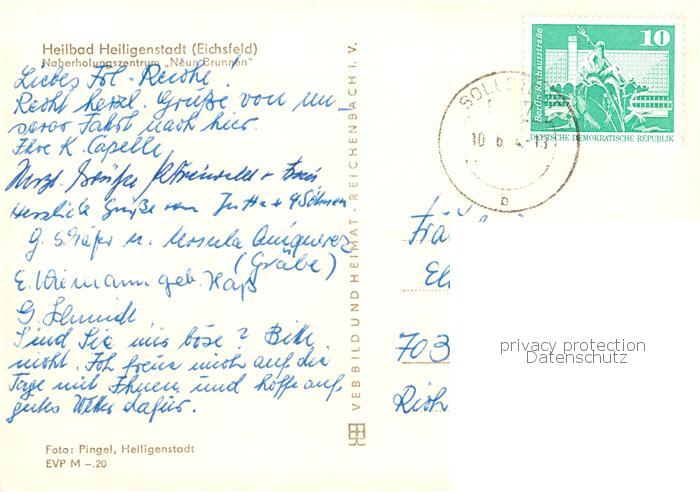 Heilbad Heiligenstadt (Eichsfeld)
Naherholungszentrum „Neun Brunnen"
Liebes Frl. Reiche!
Recht herzl. Grüße von un-
serer Fahrt nach hier.
Ihre K. Capelle
Herzl. Grüße + Frau
Herzliche Grüße von Jutta + 4 Söhnen
G. Schäfer u. Ursula
(Gräbe)
E. Wiemann geb. Haß
G. Schmidt
Sind Sie mir böse? Bitte
nicht. Ich freue mich auf die
Tage mit Ihnen und hoffe auf
gutes Wetter dafür.
Foto: Pingel, Heiligenstadt
EVP M –.20
VEB BILD UND HEIMAT · REICHENBACH I. V.
10
Berlin, Rathausstraße
DEUTSCHE DEMOKRATISCHE REPUBLIK
10 6
b
703
privacy protection
Datenschutz